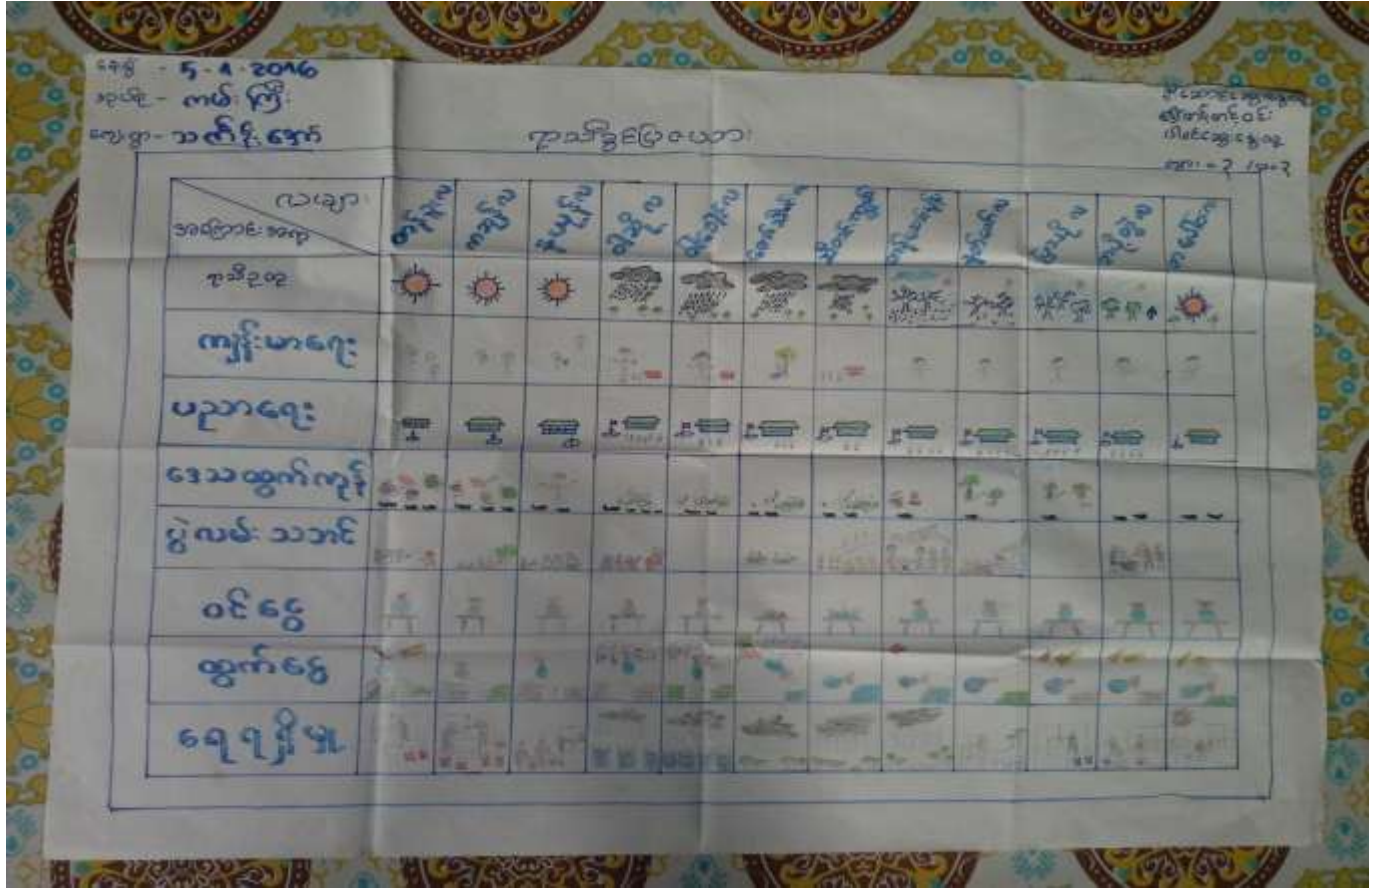 နေ့စွဲ - 5-1-2016
အုပ်စု - ကမ်းကြီး
ကျေးရွာ -
ရာသီခွင်ပြဇယား
လများ
အကြောင်းအရာ
တန်ခူးလ
ကဆုန်လ
နယုန်လ
ဝါဆိုလ
ဝါခေါင်လ
တော်သလင်းလ
သီတင်းကျွတ်လ
တန်ဆောင်မုန်းလ
နတ်တော်လ
ပြာသိုလ
တပို့တွဲလ
တပေါင်းလ
ရာသီဥတု
ကျန်းမာရေး
ပညာရေး
ဒေသထွက်ကုန်
ပွဲလမ်းသဘင်
ဝင်ငွေ
ထွက်ငွေ
ရေရရှိမှု